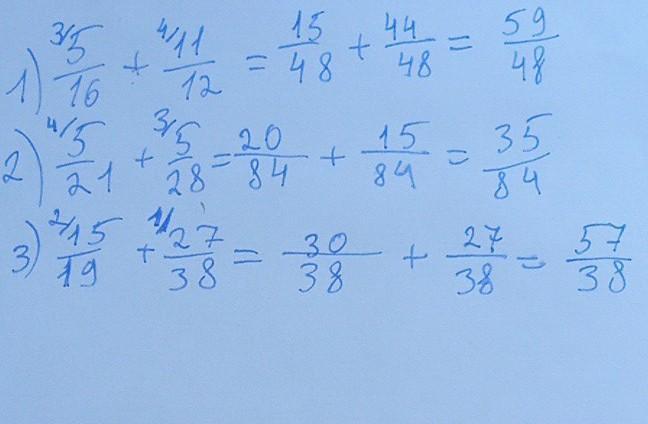 1) ³⁄5/16 + ⁴⁄11/12 = 15/48 + 44/48 = 59/48
2) ⁴⁄5/21 + ³⁄5/28 = 20/84 + 15/84 = 35/84
3) ²⁄15/19 + ¹⁄27/38 = 30/38 + 27/38 = 57/38